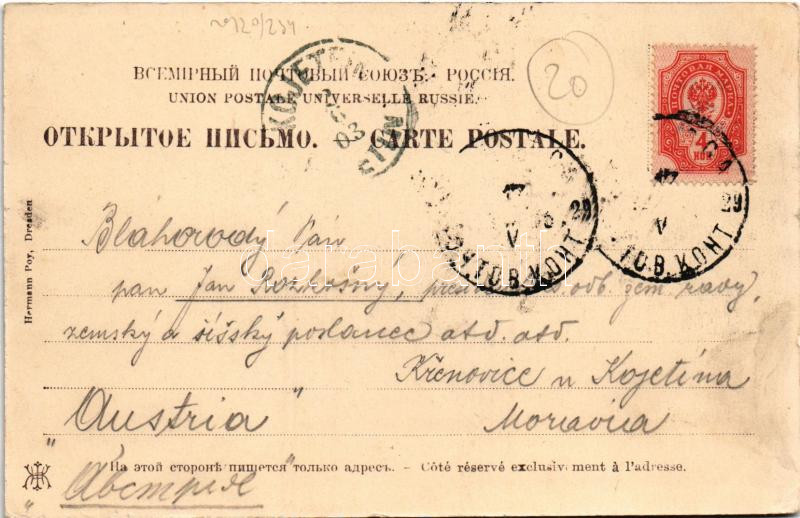 №120/234
ВСЕМІРНЫЙ ПОЧТОВЫЙ СОЮЗЪ. РОССІЯ.
UNION POSTALE UNIVERSELLE RUSSIE.
ОТКРЫТОЕ ПИСЬМО. — CARTE POSTALE.
KOJETEIN
03
20
ПОЧТОВАЯ МАРКА
4
КОП
V
29
ПОЧТОВ. КОНТ.
V
29
ТОВ. КОНТ
Hermann Poy, Dresden
Blahorodý Pán
pan Jan Rozkošný, odb. zem. ravy,
zemský a říšský poslanec atd. atd.
Křenovice u Kojetína
Austria" Moravia
На этой сторонѣ пишется только адресъ. - Côté réservé exclusivement à l'adresse.
"Австрія"
darabanth